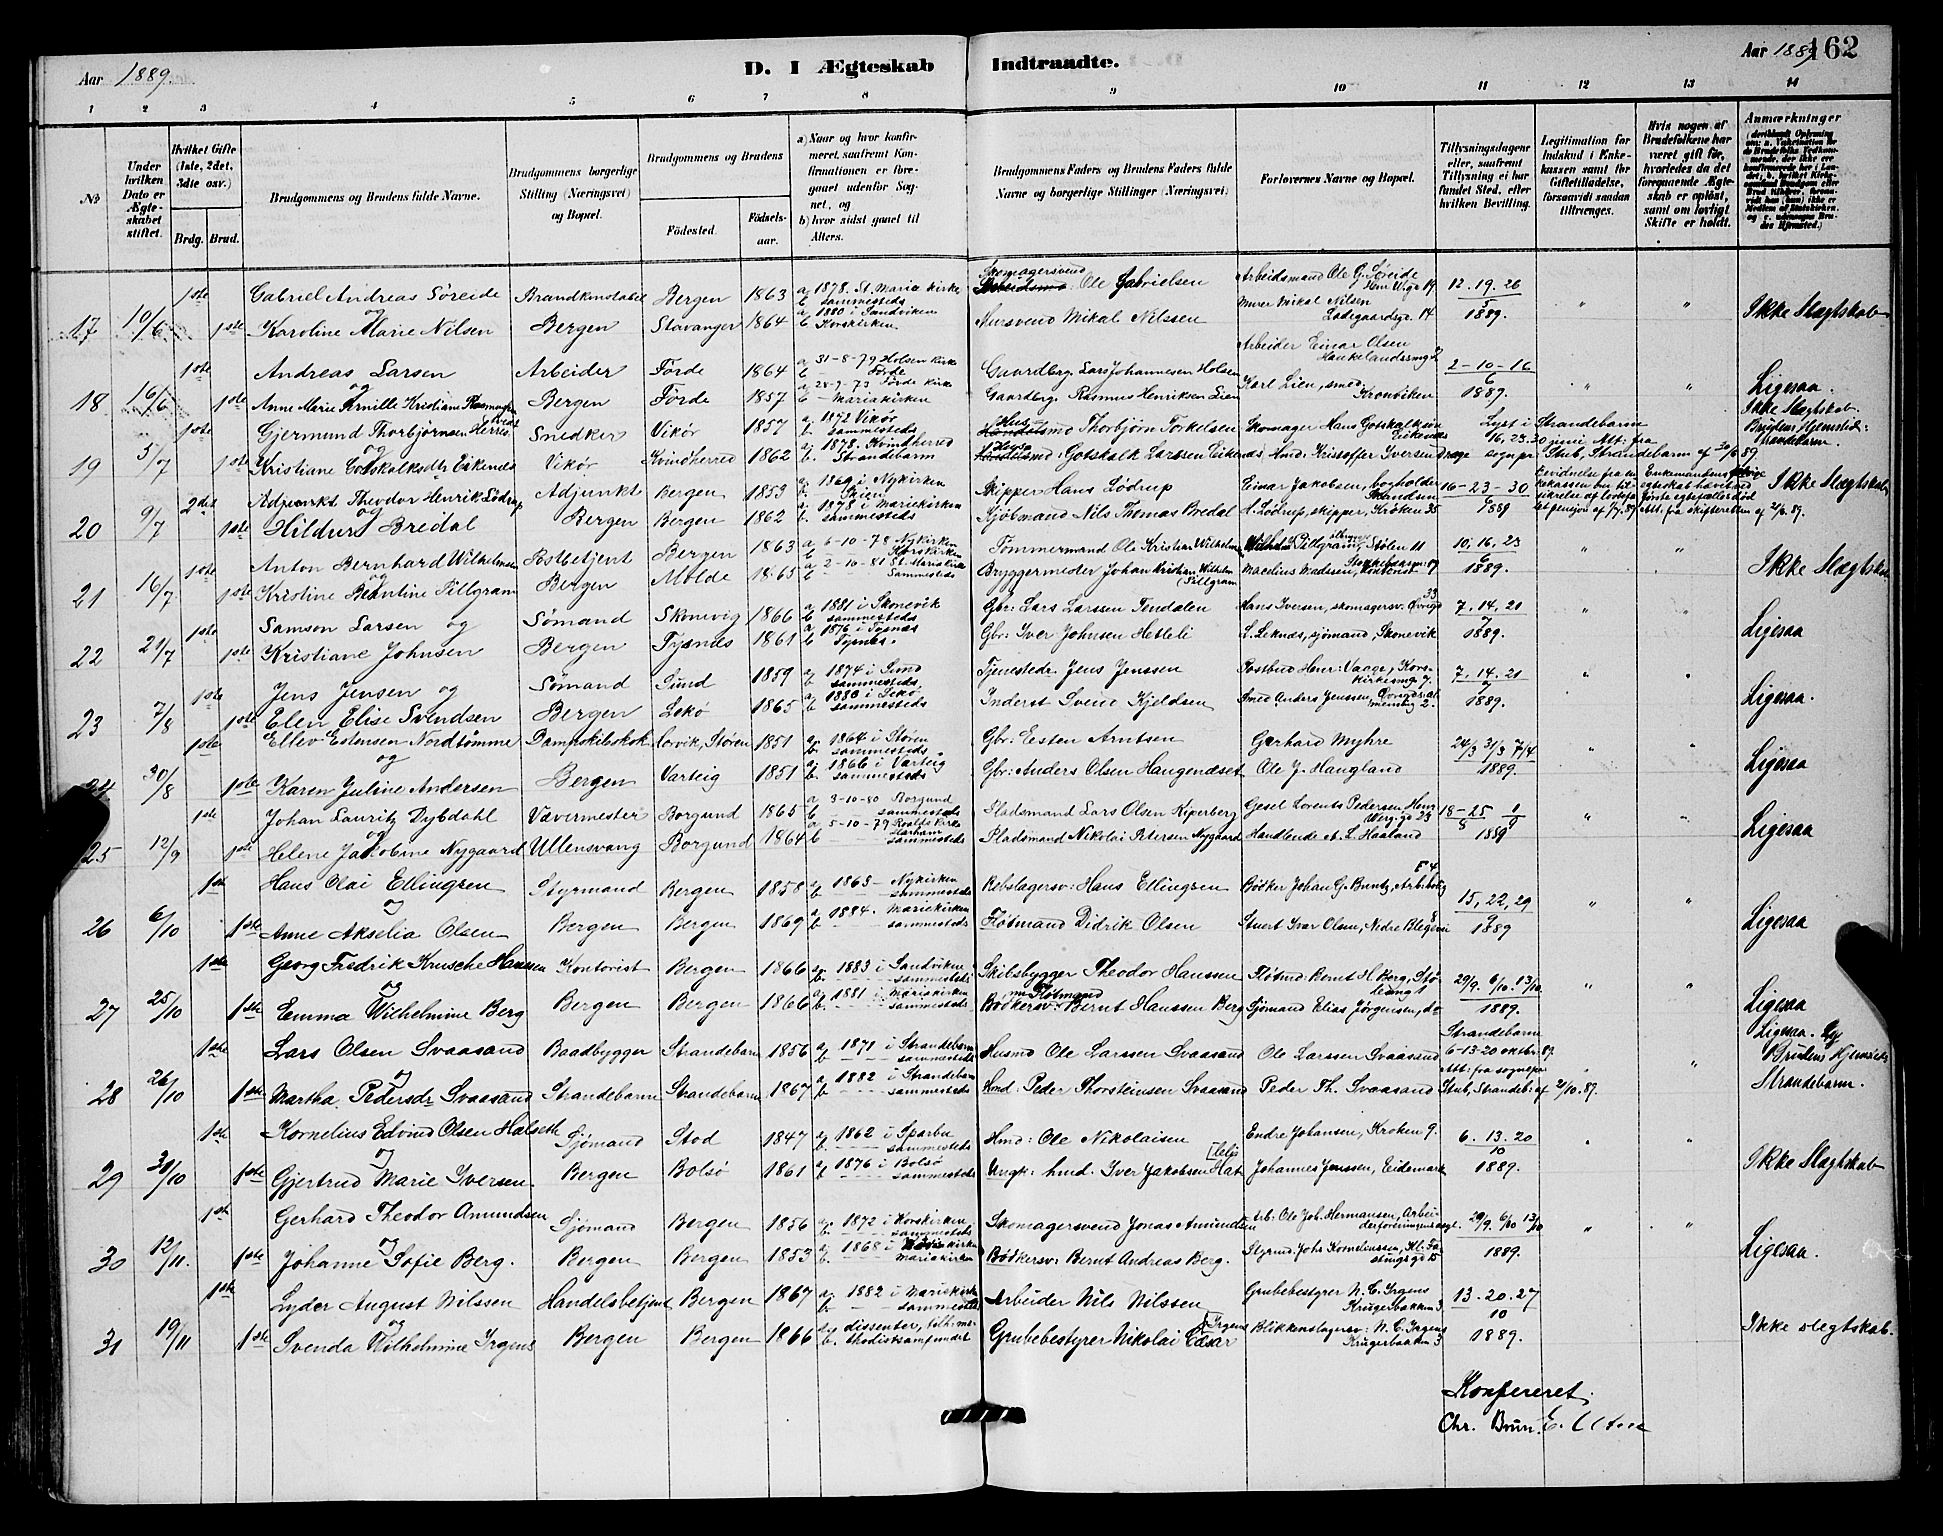 Aar 1889. D. I Ægteskab Indtraadte. Aar 1889 162
1 2 3 4 5 6 7 8 9 10 11 12 13 14
№
Under hvilken Dato er Ægteskabet stiftet.
Hvilket Gifte (1ste, 2det, 3die osv.)
Brdg. Brud.
Brudgommens og Brudens fulde Navne.
Brudgommens borgerlige Stilling (Næringsvei) og Bopæl.
Brudgommens og Brudens
Fødested. Fødselsaar.
a) Naar og hvor konfirmeret, saafremt Konfirmationen er foregaaet udenfor Sognet, og
b) hvor sidst gaaet til Alters.
Brudgommens Faders og Brudens Faders fulde Navne og borgerlige Stillinger (Næringsvei).
Forlovernes Navne og Bopæl.
Tillysningsdagene eller, saafremt Tillysning ei har fundet Sted, efter hvilken Bevilling.
Legitimation for Indskud i Enkekassen samt for Giftetilladelse, forsaavidt saadan tiltrænges.
Hvis nogen af Brudefolkene har været gift før, hvorledes da det foregaaende Ægteskab er opløst, samt om lovligt Skifte er holdt.
Anmærkninger
1ste Gabriel Andreas Søreide Brandkonstabel Bergen 1863 a 1878. St. Maria Kirke b sammesteds Skomagersvend Ole Gabrielsen Arbeidsmand Ole G. Søreide 12. 19. 26
og
17 10/6 1ste Karoline Marie Nilsen Bergen Stavanger 1864 a 1880 i Sandviken b Korskirken Mursvend Mikal Nilssen Murer Mikal Nilsen Ladegaardsg. 14 5 1889. " " Ikke Slægtskab
1ste Andreas Larsen Arbeider Førde 1864 a 31-8-79 Holsen Kirke b Førde Gaardbrg. Lars Johannesen Holsen Arbeider Einar Olsen Haukelandsmg 2 2-10-16
og
18 16/6 1ste Anne Marie Pernille Kristiane Rasmusen Bergen Førde 1857 Førde Kirke b Mariakirken Gaardbrg. Rasmus Henriksen Lien Karl Lien, smed, Kronviken 6 1889. " " Ligesaa.
1ste Gjermund Thorbjørnsen Snedker Vikør 1857 a 1872 Vikør b. sammesteds Thorbjørn Torkelsen Skomager Hans Gotskalksen Eikenæs Lyst i Strandebarm 16. 23. 30 juni Att. fra Ikke Slægtskab. Brudens Hjemsted: Strandebarm.
19 5/7 1ste Kristiane Gotskalksdtr Eikenæs Vikør Kvindherred 1862 a 1878. Kvindherred b. Strandebarm Gotskalk Larssen Eikenæs Hmd: Kristoffer Iversen sognpr. Stub, Strandebarm af 30/6 89.
2det Adjunkt Theodor Henrik Lødrup Adjunkt Bergen 1853 a 1869 i Nykirken b Skien Skipper Hans Lødrup Einar Jakobsen, bogholder 16-23-30 Ikke Slægtskab
og
20 9/7 1ste Hildur Bredal Bergen Bergen 1862 a 1878 i Mariakirken b sammesteds Sjømand Nils Thomas Bredal H. Lødrup, skipper, Kroken 35 6 1889 Att. fra skifteretten af 2/6.89.
1ste Anton Bernhard Wilhelmsen Postbetjent Bergen 1863 a 6-10-78 Nykirken b Korskirken Tømmermand Ole Kristian Wilhelmsen Pillgram, Stølen 11 10, 16, 23
og
21 16/7 1ste Kristine Bentine Pillgram Bergen Molde 1865 a 2-10-81 St. Mariakirke b Sammesteds Bryggermester Johan Kristian Wilhelm Pillgram 6 1889. " " Ikke Slægtsk
1ste Samson Larsen og Sømand Skonevig 1866 a 1881 i Skonevik b sammesteds Gbr: Lars Larssen Tindalen Hans Iversen, skomagersv. 7. 14. 21
22 21/7 1ste Kristiane Johnsen Bergen Tysnes 1861 a 1876 i Tysnæs b Tysnæs. Gbr: Iver Johnsen Hetleli L. Leknæs, sjømand, Skonevik 7 1889. " " Ligesaa
1ste Jens Jensen og Sømand Sund 1859 a 1874 i Sund b sammesteds. Jens Jenssen Postbud Henr: Vaage, Korskirkesmg 7. 7. 14. 21
23 7/8 1ste Elen Elise Svendsen Bergen Lekø 1865 a 1880 i Lekø b sammesteds Inderst Svend Kjeldsen Smed Anders Jenssen 7 1889. " " Ligesaa.
1ste Ellev Estensen Nordtømme Dampskibskok Støren 1851 a 1864 i Støren b. sammesteds. Gbr: Esten Arntsen Gerhard Myhre 24/3 31/3 7/4
og
24 30/8 1ste Karen Juline Andersen Bergen Varteig 1851 a 1866 i Varteig b sammesteds Gbr: Anders Olsen Haugenæset Ole J. Haugland 1889. " " Ligesaa
1ste Johan Lauritz Dybdahl Vævermester Borgund 1865 a 3-10-80 Borgund b sammesteds Pladsmand Lars Olsen Kiperberg Gesel Lorents Pedersen 18-25 1
og
25 12/9 1ste Helene Jakobine Nygaard Ullensvang Borgund 1864 a 5-10-79 Roalds Kirke Harham b sammesteds Pladsmand Nikolai Petersen Nygaard Handlende A. L. Haaland 8 9 1889 " " Ligesaa
1ste Hans Olai Ellingsen Styrmand Bergen 1858 a 1863- Nykirken b sammesteds Rebslagersv: Hans Ellingsen Bødker Johan G. Brentz 15, 22, 29
og
26 6/10 1ste Anne Akselia Olsen Bergen Bergen 1869 a 1884. Mariekirken b sammesteds Fløtmand Didrik Olsen Stuert Ivar Olsen, Nedre Blegevei 9 1889 " " Ligesaa
1ste Georg Fredrik Krusche Hanssen Kontorist Bergen 1866 a 1883 i Sandviken b. sammesteds Skibsbygger Theodor Hanssen Fløtmd: Bernt H. Berg, Stølesmg 1 29/9. 6/10. 13/10
og
27 25/10 1ste Emma Wilhelmine Berg Bergen Bergen 1866 a 1881 i Mariakirken b sammesteds nu Fløtmand Bødkersv: Bernt Hanssen Berg Sjømand Elias Jørgensen, do 1889. " " Ligesaa
1ste Lars Olsen Svaasand Baadbygger Strandebarm 1856 a 1871 i Strandebarm b. sammesteds Husmd Ole Larssen Svaasand Ole Larssen Svaasand Strandebarm 6-13-20 oktbr. 89. Ligesaa. Og Brudens Hjemsted: Strandebarm.
og
28 26/10 1ste Martha Pedersdr Svaasand Strandebarm Strandebarm 1867 a 1882 i Strandebarm b sammesteds Hmd: Peder Thorsteinsen Svaasand Peder Th. Svaasand Att. fra sognepr. Stub, Strandeb: af 21/10.89. " "
1ste Kornelius Edvind Olsen Halseth Sjømand Stod 1847 a 1862 i Sparbu b sammesteds Hmd: Ole Nikolaisen Endre Johansen, Kroken 9. 6. 13. 20
og
29 31/10 1ste Gjertrud Marie Iversen. Bergen Bolsø 1861 a 1876 i Bolsø b sammesteds Ungk: hmd. Iver Jakobsen Johannes Jenssen, Eidemark 10 1889. " " Ikke Slægtskab
1ste Gerhard Theodor Amundsen Sjømand Bergen 1856 a 1872 i Korskirken b. sammesteds Skomagersvend Jonas Amundsen Arb: Ole Joh. Hermansen 29/9. 6/10 13/10
og
30 12/11. 1ste Johanne Sofie Berg. Bergen Bergen 1853 a 1868 i b. Mariakirken Bødkersv: Bernt Andreas Berg. Styrmd Johs Kornelinssen 1889. " " Ligesaa.
1ste Lyder August Nilssen Handelsbetjent Bergen 1867 a 1882 i Mariekirken b. sammesteds Arbeider Nils Nilssen Grubebestyrer N. C. Irgens Krugerbakken 3 13. 20. 27
og
31 19/11 1ste Svenda Wilhelmine Irgens Bergen Bergen 1866 a dissenter, tilh. me- b. thodistsamfundet Grubebestyrer Nikolai Cæsar Irgens Blikkenslagersv: N. C. Irgens Krugerbakken 3 10 1889. Ikke slegtskab.
Konfereret.
Chr. Brun.